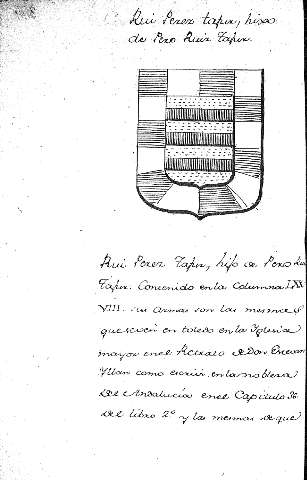 Rui Perez tapir, hijo
de Pero Ruiz Tapir.
Rui Perez Tapir, hijo de Pero Rui
Tapir. Contenido en la Columna LXX
VIII. sus armas son las mesmas
que en toledo en la Iglesia
mayor en el Retrato de Don Estevan
Yllan como escrivi en la nobleza
Del Andalucia en el Capitulo 36
del libro 2º y las mesmas de que